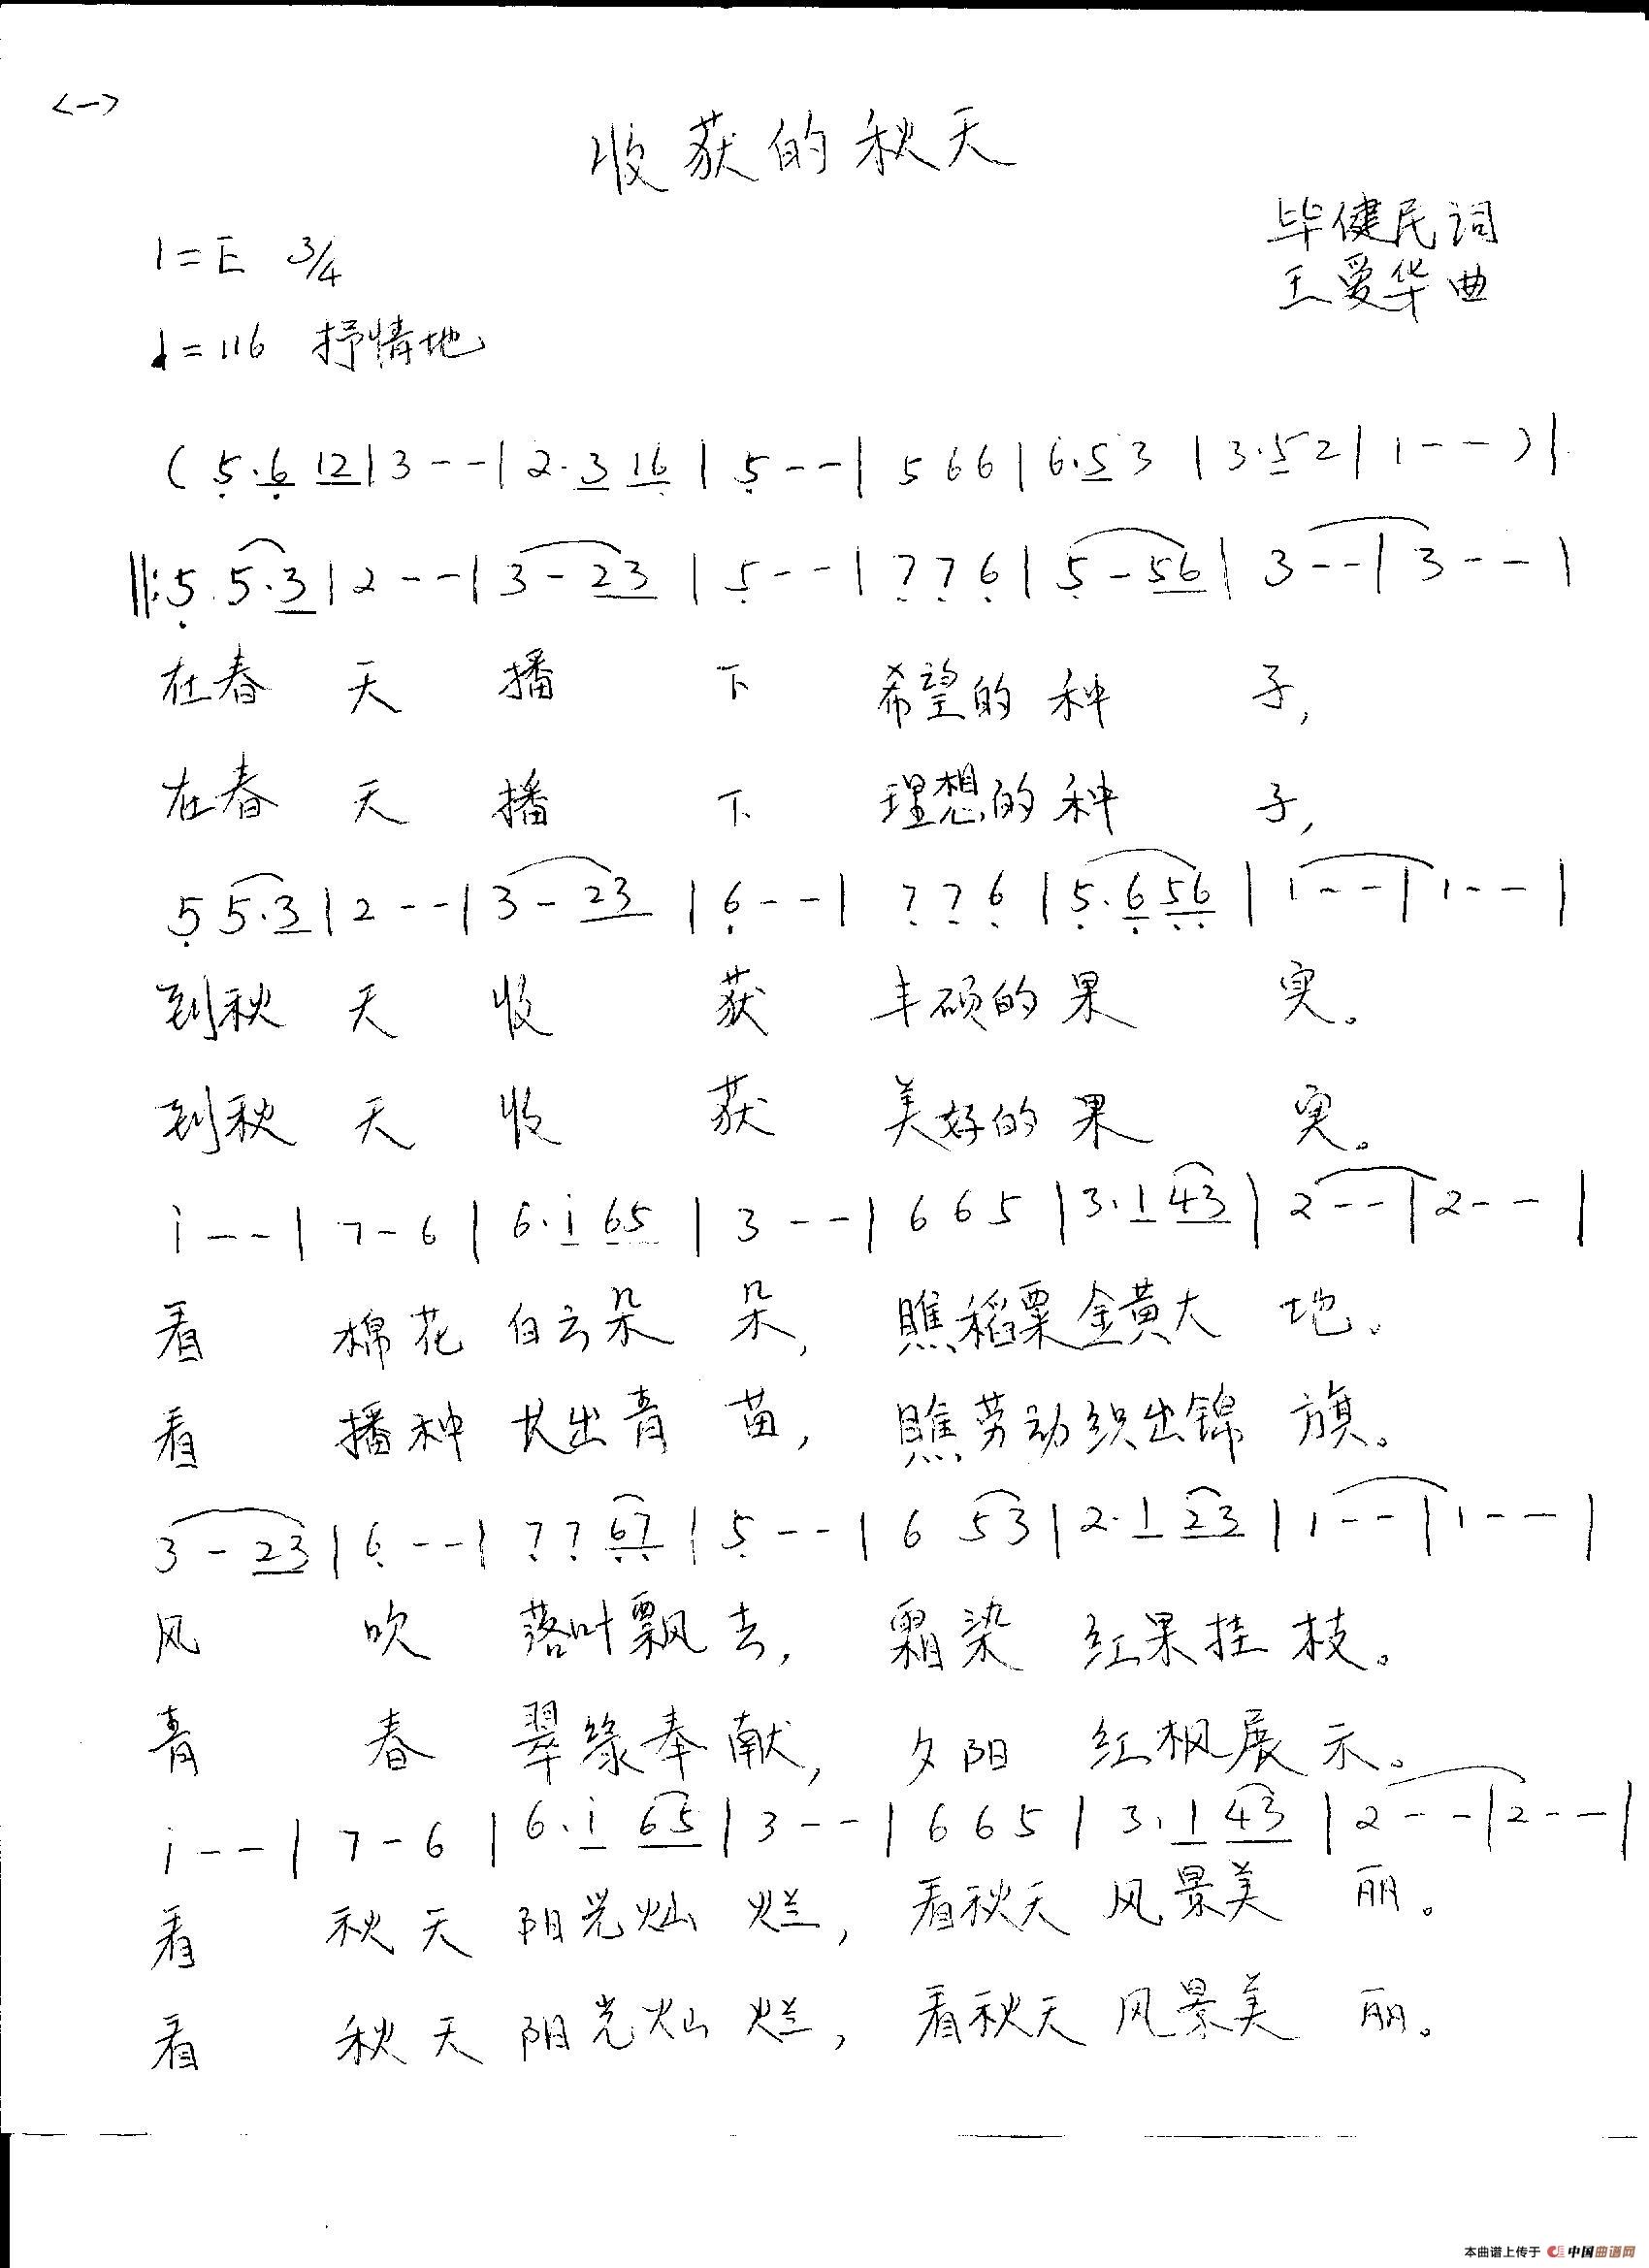 <一>
收获的秋天
毕健民词
1=E 3/4
王爱华曲
♩=116 抒情地
(5·6 12|3--|2·3 16|5--|566|6·53|3·52|1--)|
‖:5 5·3|2--|3-23|5--|776|5-56|3--|3--|
在春天播下希望的种子,
在春天播下理想的种子,
5 5·3|2--|3-23|6--|776|5·6 56|1--|1--|
到秋天收获丰硕的果实。
到秋天收获美好的果实。
i--|7-6|6·i 65|3--|665|3·1 43|2--|2--|
看棉花白云朵朵,瞧稻粟金黄大地。
看播种长出青苗,瞧劳动织出锦旗。
3-23|6--|7767|5--|6 53|2·1 23|1--|1--|
风吹落叶飘去,霜染红果挂枝。
青春翠绿奉献,夕阳红枫展示。
i--|7-6|6·i 65|3--|665|3·1 43|2--|2--|
看秋天阳光灿烂,看秋天风景美丽。
看秋天阳光灿烂,看秋天风景美丽。
本曲谱上传于 中国曲谱网